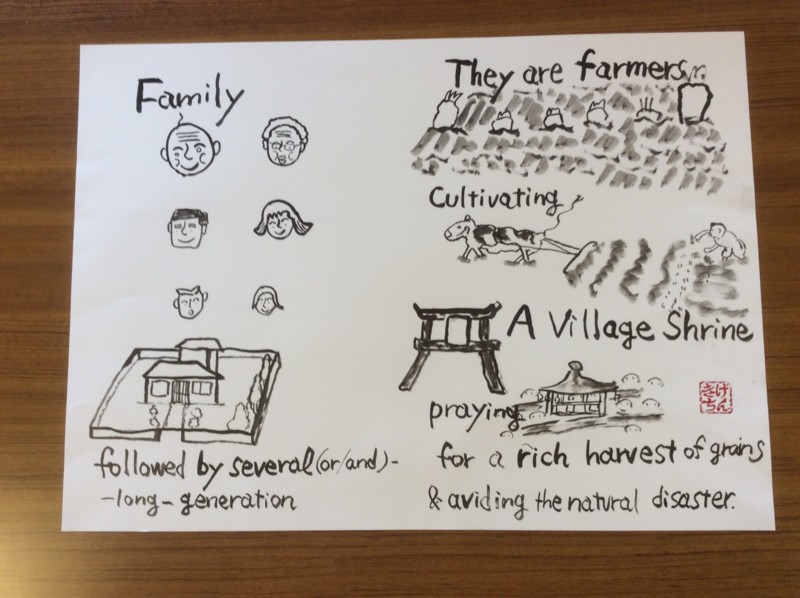 Family
followed by several (or/and) -
- long - generation
They are farmers
Cultivating
A Village Shrine
praying
for a rich harvest of grains
& aviding the natural disaster.
げん
きち